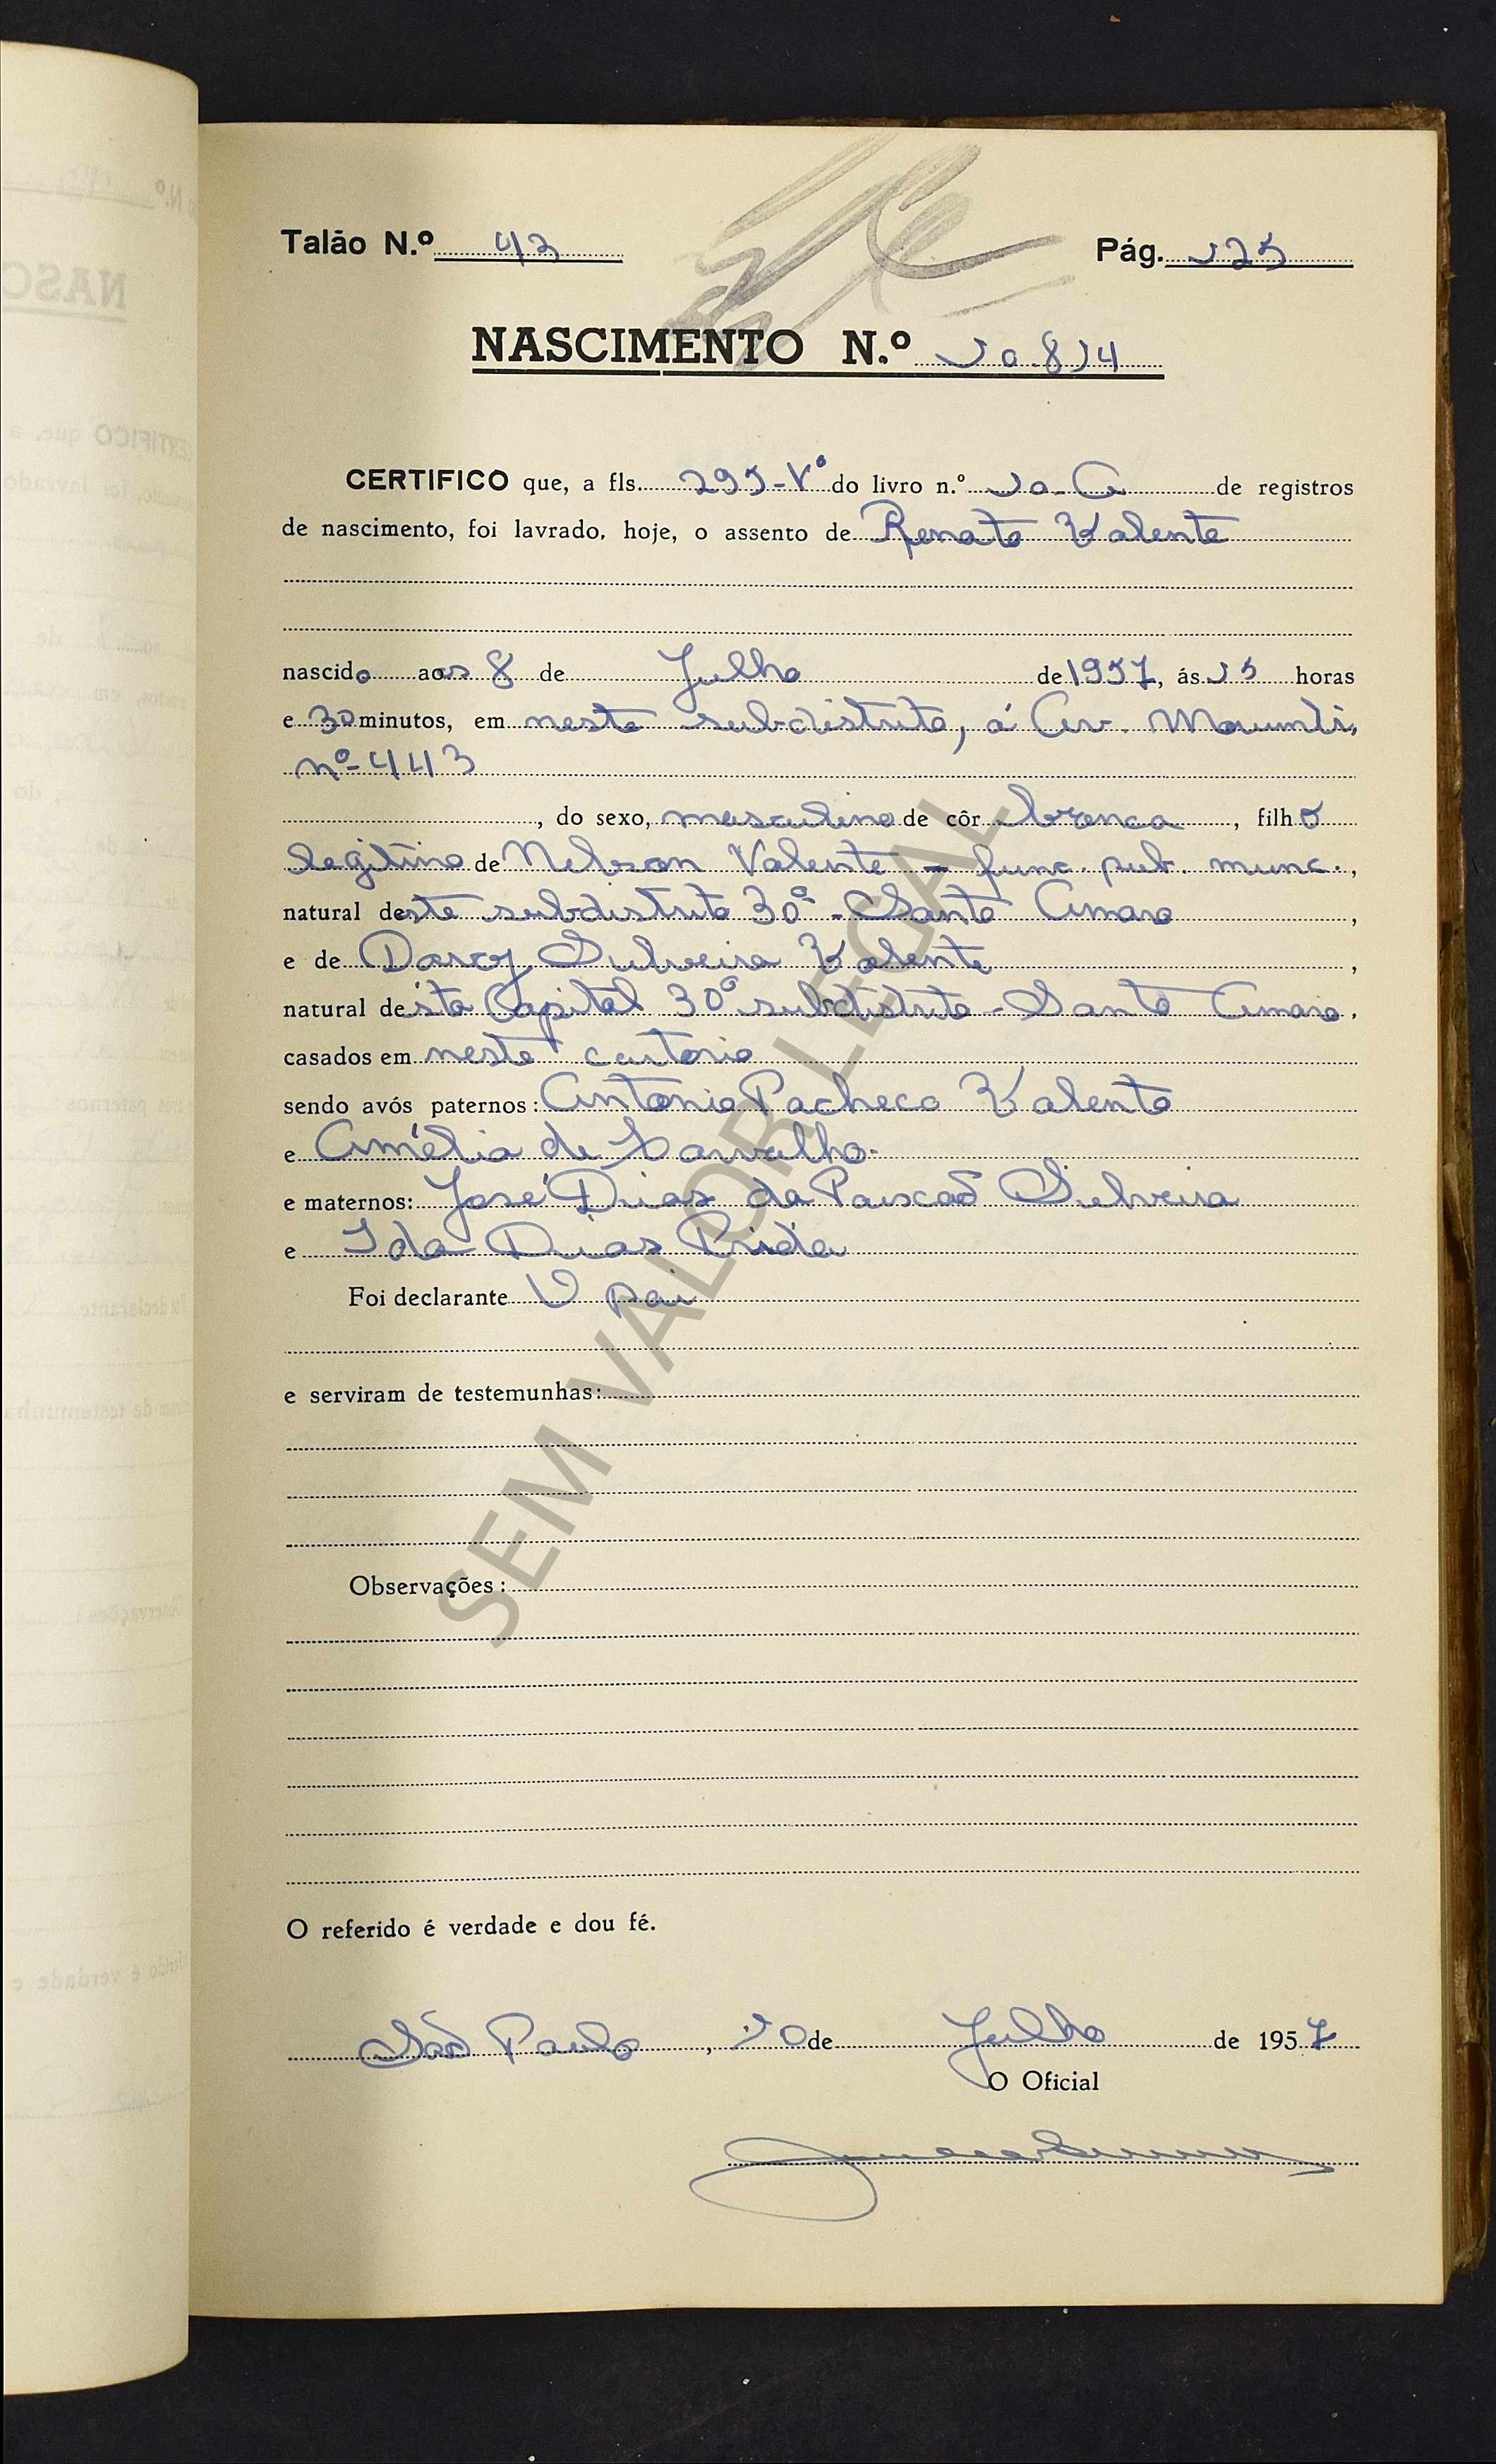 Talão N.º 43 Pág. 125
NASCIMENTO N.º 10.814
CERTIFICO que, a fls. 295-Vº do livro n.º 10-A de registros
de nascimento, foi lavrado, hoje, o assento de Renato Valente
nascido aos 8 de Julho de 1957, ás 15 horas
e 30 minutos, em neste subdistrito, á Av. Morumbi,
nº 443
, do sexo, masculino de côr branca, filho
legitimo de Nelson Valente - func. pub. munc.,
natural deste subdistrito 30º - Santo Amaro,
e de Darcy Silveira Valente,
natural desta Capital 30º subdistrito - Santo Amaro.
casados em neste cartorio
sendo avós paternos: Antonio Pacheco Valente
e Amélia de Carvalho.
e maternos: José Dias da Paixão Silveira
e Ida Dias
Foi declarante O pai
e serviram de testemunhas:
Observações:
O referido é verdade e dou fé.
São Paulo, 10 de Julho de 1957
O Oficial
SEM VALOR LEGAL